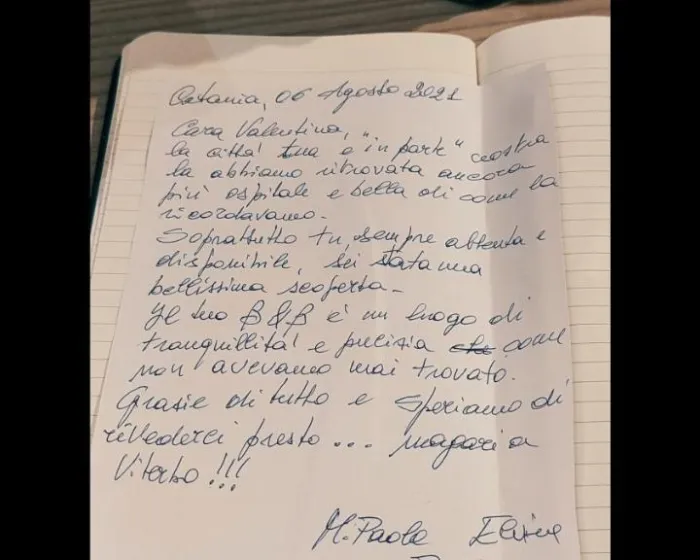 Catania, 06 Agosto 2021
Cara Valentina,
la città tua e "in parte" nostra
la abbiamo ritrovata ancora
più ospitale e bella di come la
ricordavamo.
Soprattutto tu, sempre attenta e
disponibile, sei stata una
bellissima scoperta.
Il tuo B&B è un luogo di
tranquillità e pulizia che come
non avevamo mai trovato.
Grazie di tutto e speriamo di
rivederci presto... magari a
Viterbo!!!
M. Paola